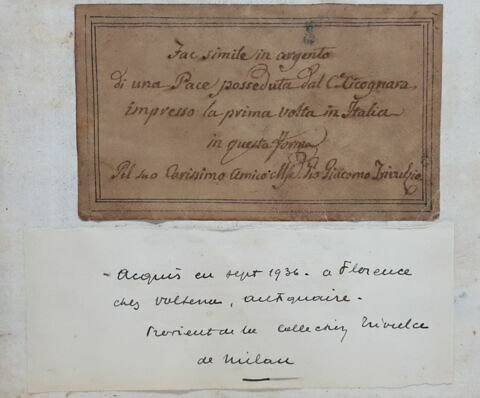 Fac simile in argento
di una Pace posseduta dal C.e Cicognara
impresso la prima volta in Italia
in questa forma
Pel suo Carissimo Amico Gio Giacomo Trivulzio
Acquis en sept 1936 - a Florence
chez Volterra, antiquaire -
Provient de la Collection Trivulce
de Milan